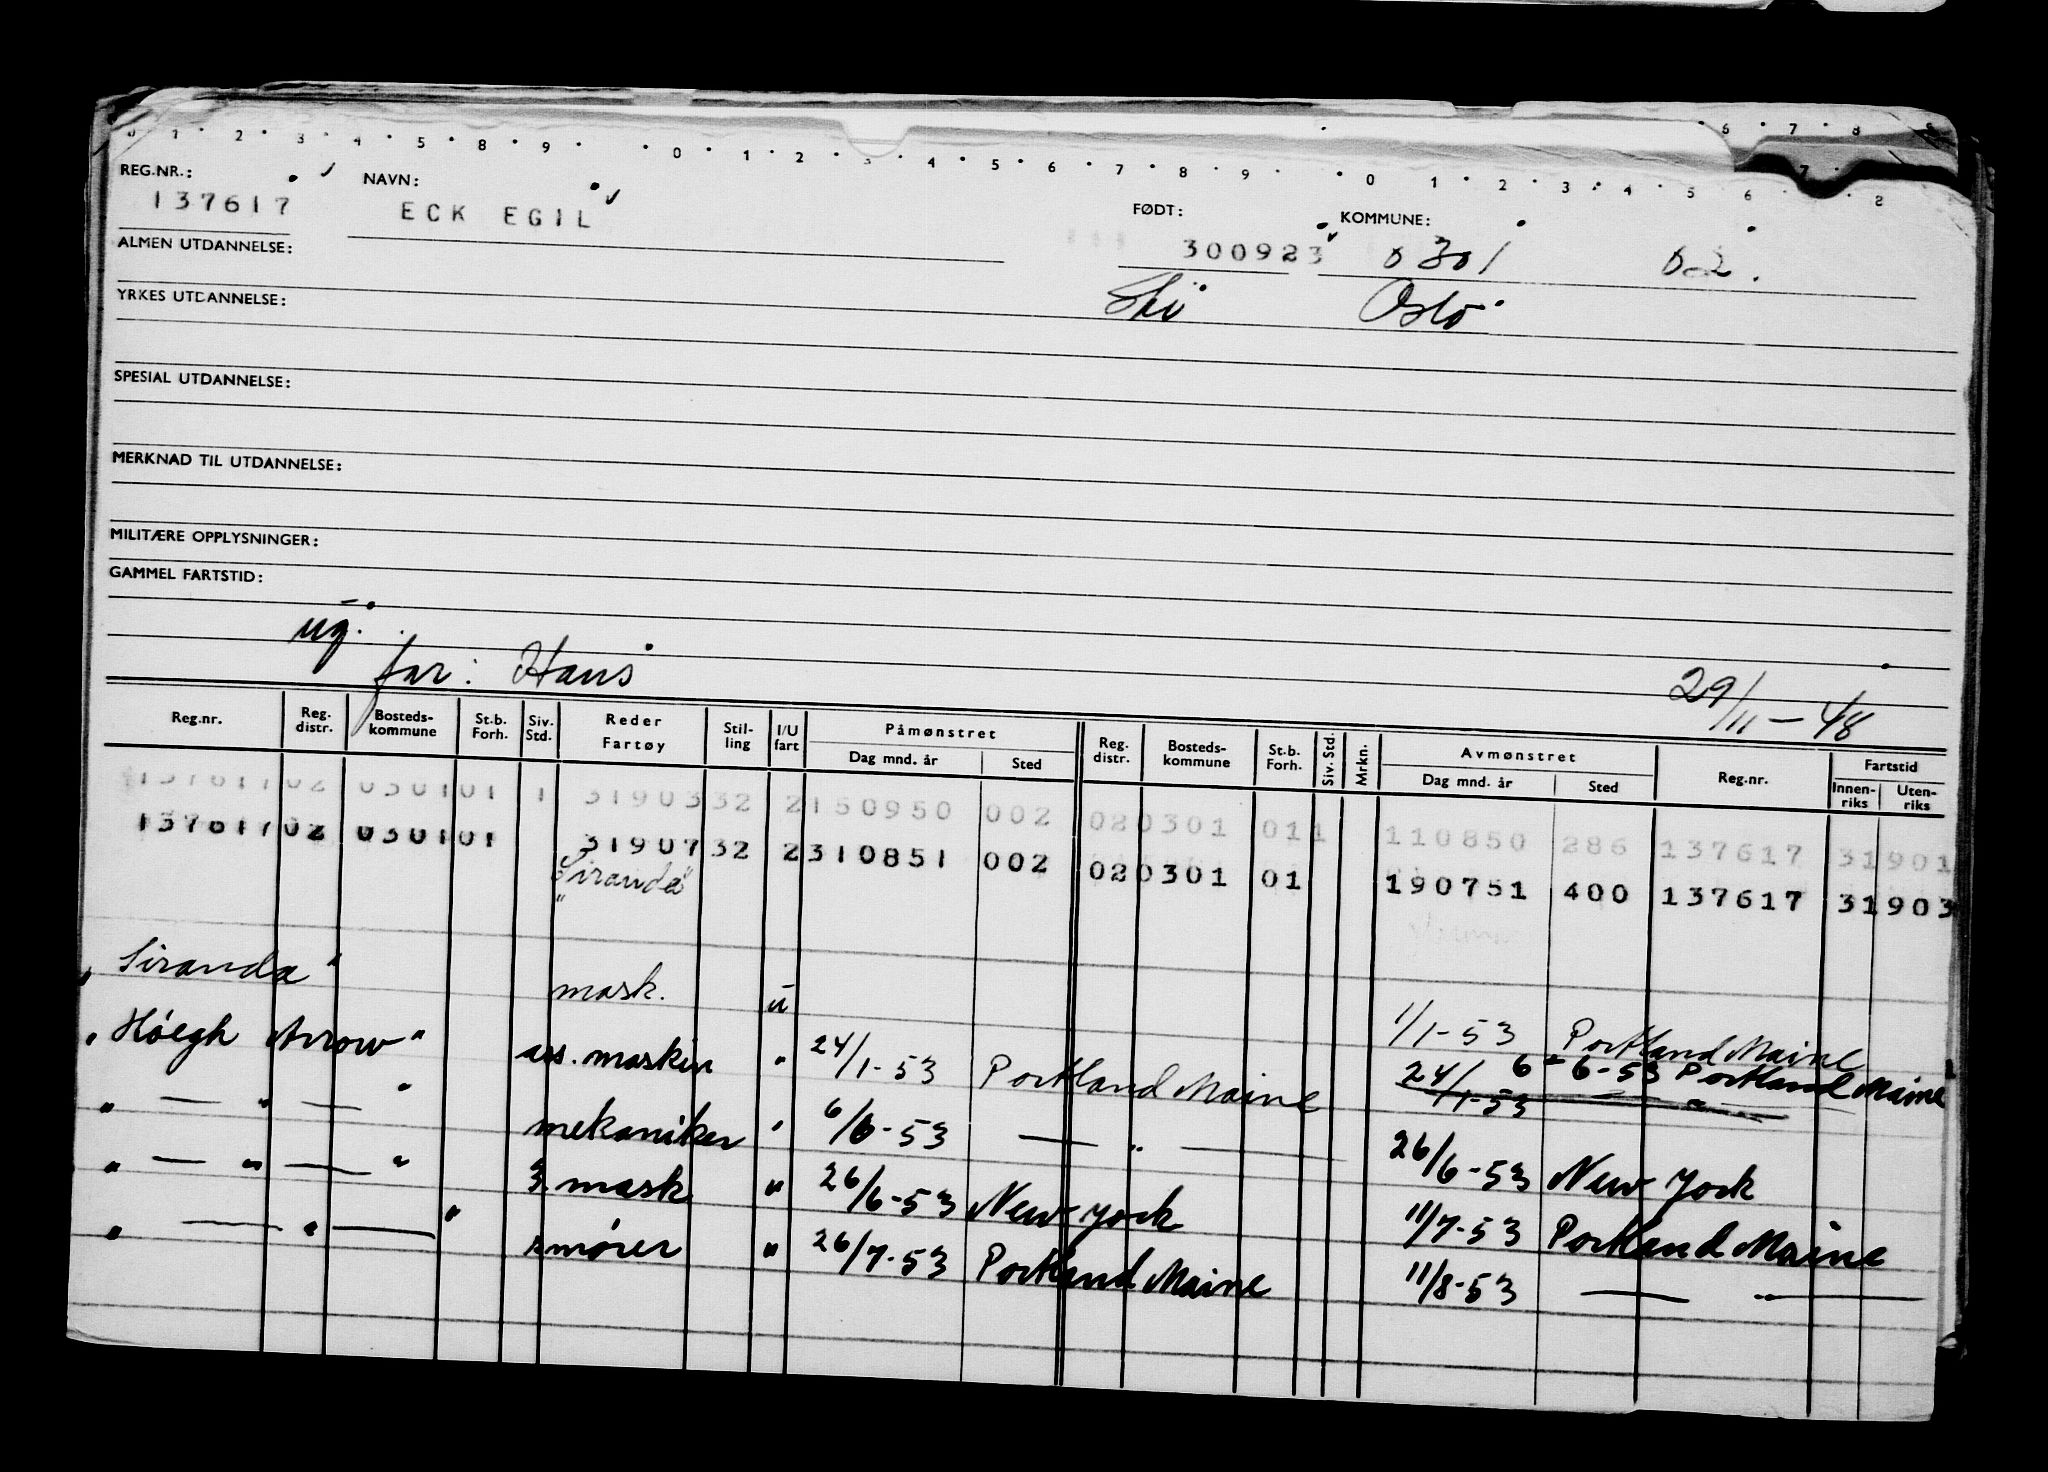 0 1 2 3 4 5 8 9 0 1 2 3 4 5 6 7 8 9 0 1 2 3 4 5 6 7 8
6 7 8 9
REG.NR.: NAVN: FØDT: KOMMUNE:
137617 ECK EGIL 300923 0301 02.
ALMEN UTDANNELSE:
YRKES UTDANNELSE: Ski Oslo
SPESIAL UTDANNELSE:
MERKNAD TIL UTDANNELSE:
MILITÆRE OPPLYSNINGER:
GAMMEL FARTSTID:
ug.
far: Hans 29/11-48
Reg.nr. Reg. distr. Bosteds-kommune St.b. Forh. Siv. Std. Reder Fartøy Stil-ling I/U fart Påmønstret Dag mnd. år Sted Reg. distr. Bosteds-kommune St.b. Forh. Siv. Std. Mrkn. Avmønstret Dag mnd. år Sted Reg.nr. Fartstid Innen-riks Uten-riks
137617 02 0301 01 1 31903 32 2 150950 002 02 0301 01 1 110850 286 137617 31901
137617 02 0301 01 31907 32 2 310851 002 02 0301 01 190751 400 137617 31903
"Siranda"
"Siranda" mask. u 1/1-53 Portland Maine
"Höegh Arrow" ass. maskin " 24/1-53 Portland Maine 24/1-53 6-6-53 Portland Maine
" — " — " mekaniker " 6/6-53 — " — 26/6-53 New York
" — " — " 3. mask " 26/6-53 New York 11/7-53 Portland Maine
" — " — " smører " 26/7-53 Portland Maine 11/8-53 — " —